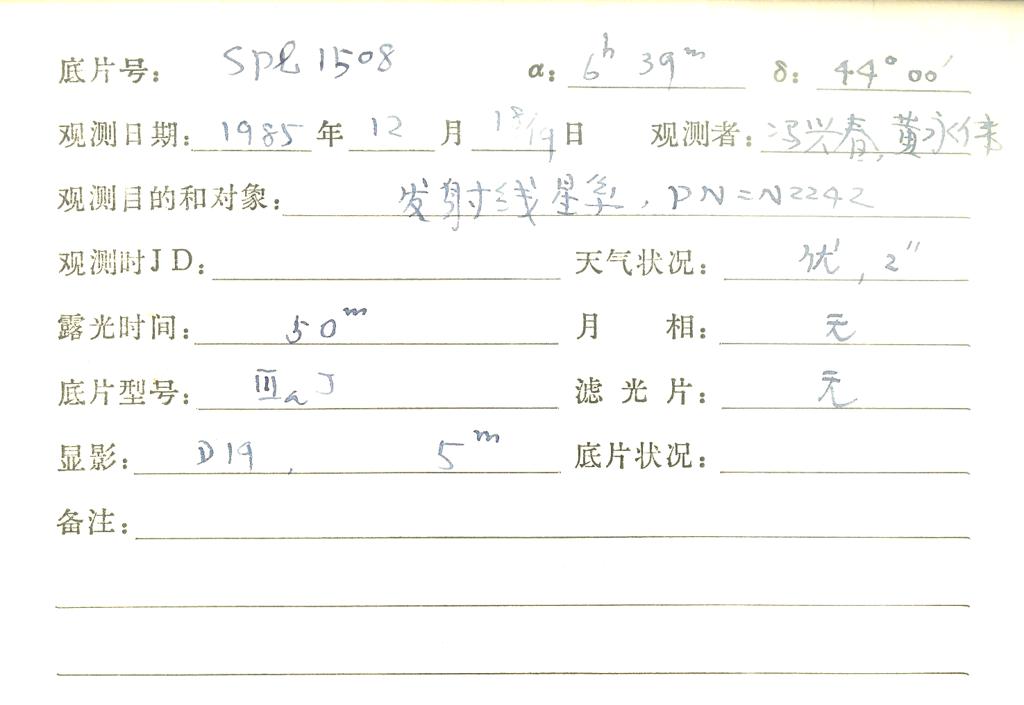 底片号: Spl 1508 α: 6ʰ 39ᵐ δ: 44° 00′
观测日期: 1985 年 12 月 18/19 日 观测者: 冯兴春, 黄永伟
观测目的和对象: 发射线星系, PN=N2242
观测时JD: 天气状况: 优, 2″
露光时间: 50ᵐ 月 相: 无
底片型号: ⅢaJ 滤光片: 无
显影: D19, 5ᵐ 底片状况:
备注: